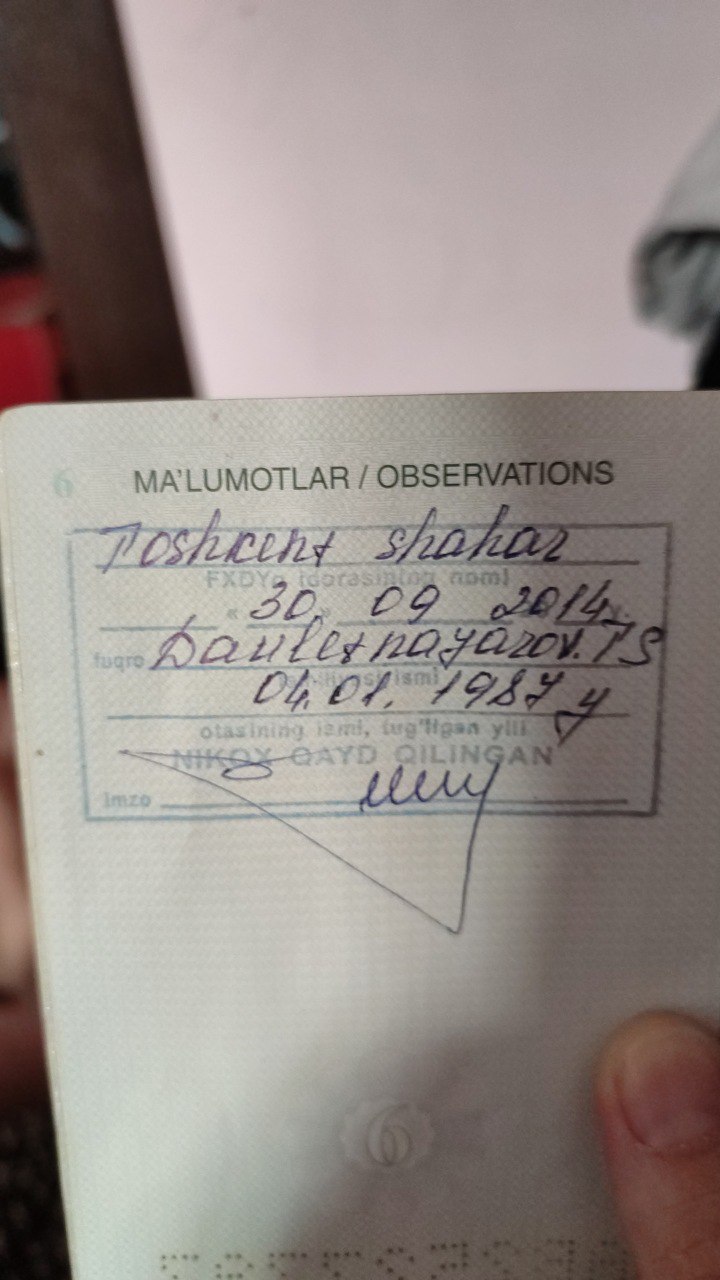 6
MA'LUMOTLAR / OBSERVATIONS
Toshkent shahar
FXDYo idorasining nomi
« 30 » 09 2014
fuqro Dauletnayazov. T S
ismi
04.01. 1987 y
otasining ismi, tug'ilgan yili
NIKOX QAYD QILINGAN
Imzo
6